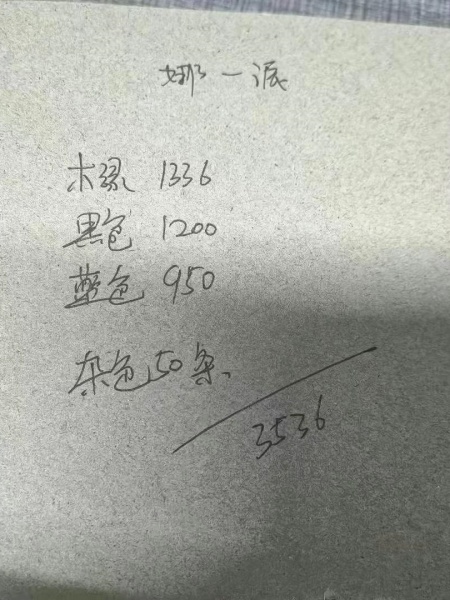 娜一派
木绿 1336
黑色 1200
蓝色 950
杂色50条
3536